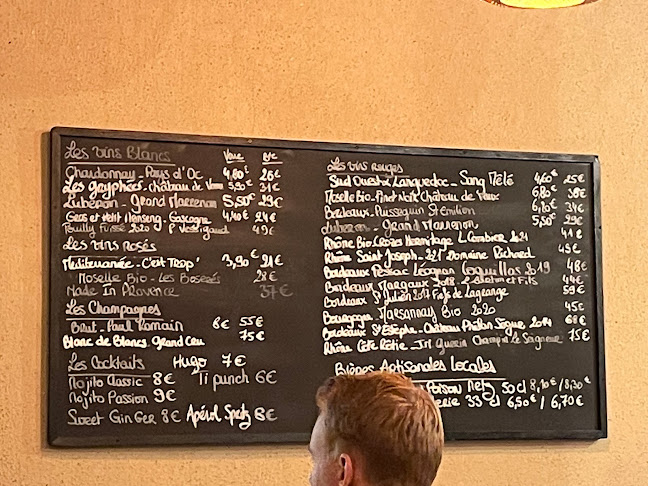 Les Vins Blancs Verre Btc
Chardonnay - Pays d'Oc 4,80€ 26€
Les gryphées - château de Vaux 5,50€ 31€
Luberon - Grand Marrenon 5,50€ 29€
Gros et Petit Manseng - Gascogne 4,40€ 24€
Pouilly Fuissé 2020 P 49€
Les Vins rosés
Mediterranée - C'est Trop' 3,90€ 21€
Moselle Bio - Les Bosesés 28€
Made In Provence 37€
Les Champagnes
Brut - Paul Romain 8€ 55€
Blanc de Blancs Grand Cru 75€
Les Cocktails Hugo 7€
Mojito Classic 8€ Ti punch 6€
Mojito Passion 9€
Sweet Ginger 8€ Apérol Spritz 8€
Les Vins Rouges
Sud Ouest & Languedoc - Sang Mêlé 4,60€ 25€
Moselle Bio - Pinot Noir Château de Vaux 6,80€ 38€
Bordeaux - Puisseguin St Emilion 6,10€ 34€
Luberon - Grand Marrenon 5,50€ 29€
Rhône Bio Crozes Hermitage L. Combier 2021 41€
Rhône Saint Joseph - 2021 Domaine Richard 45€
Bordeaux Pessac Léognan Coquillas 2019 48€
Bordeaux Margaux 2018 et Fils 44€
Bordeaux St Julien 2017 Fiefs de Lagrange 59€
Bourgogne - Marsannay Bio 2020 45€
Bordeaux St Estèphe - Château Phélan Ségur 2014 68€
Rhône Côte Rôtie - Guerin Champin Le Seigneur 75€
Bières Artisanales Locales
Poison Metz 50cl 8,10€ / 8,30€
erie 33cl 6,50€ / 6,70€